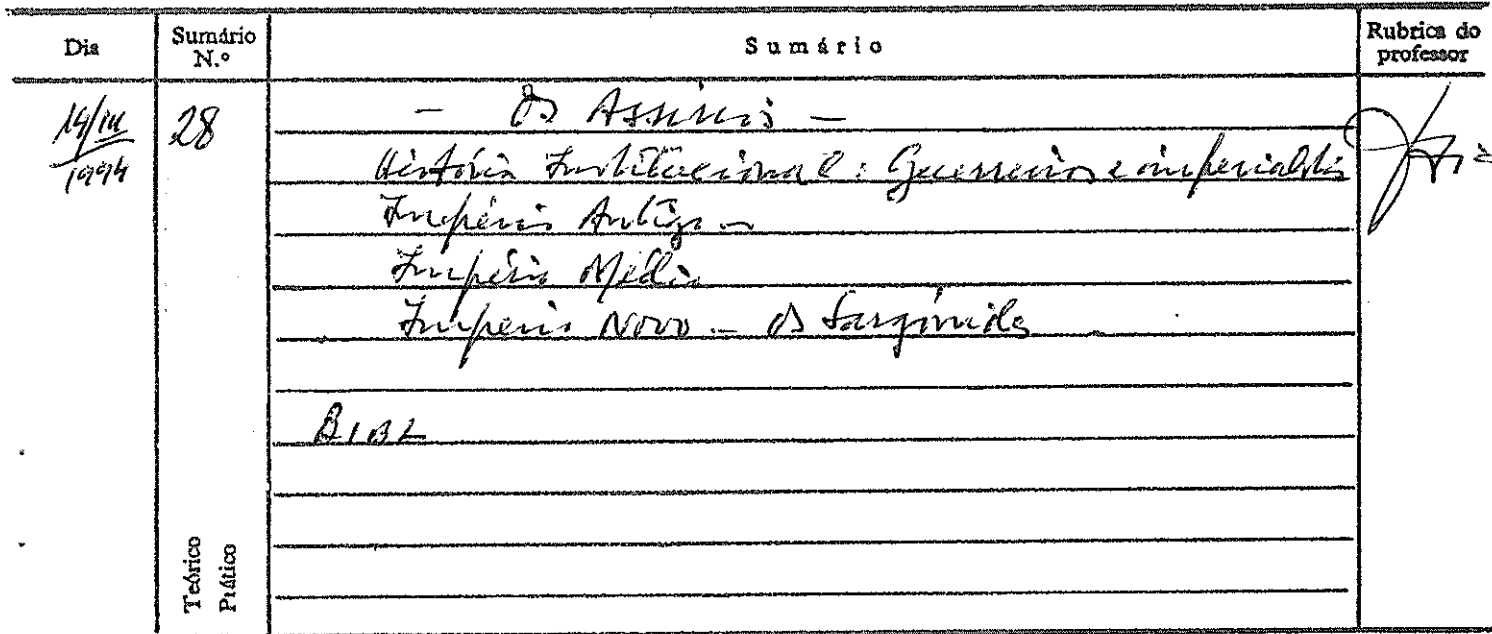 Dia Sumário N.º Sumário Rubrica do professor
28 - Os Assírios -
1994
História Institucional: Guerreiros e imperialistas
Império Antigo -
Império Médio
Império Novo - Os Sargónidas
BIBL
Teórico
Prático